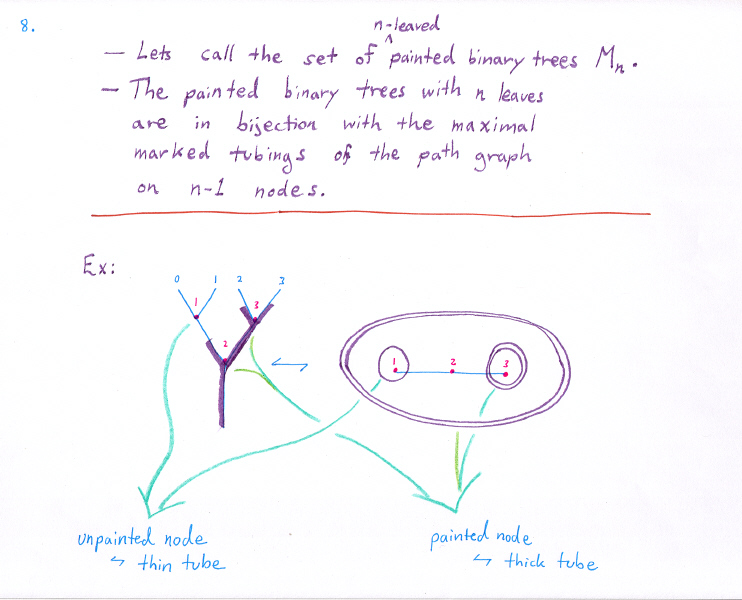 8.
n-leaved
— Lets call the set of ^ painted binary trees Mn.
— The painted binary trees with n leaves
are in bijection with the maximal
marked tubings of the path graph
on n-1 nodes.
Ex:
0 1 2 3
1 3
2
1 2 3
unpainted node
↪ thin tube
painted node
↪ thick tube